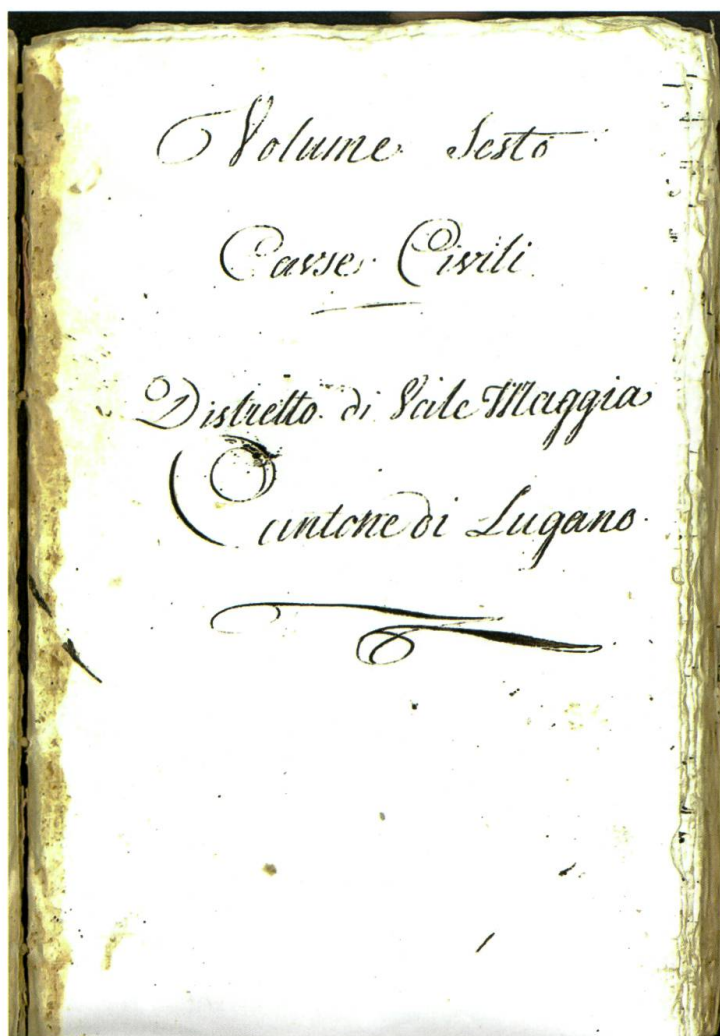 Volume Sesto
Cause Civili
Distretto di Valle Maggia
Cantone di Lugano